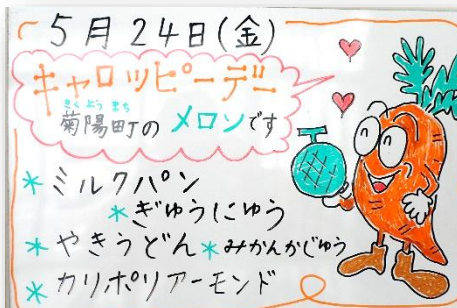 5月24日(金)
キャロッピーデー
きくようまち
菊陽町のメロンです
*ミルクパン
*ぎゅうにゅう
*やきうどん*みかんかじゅう
*カリポリアーモンド